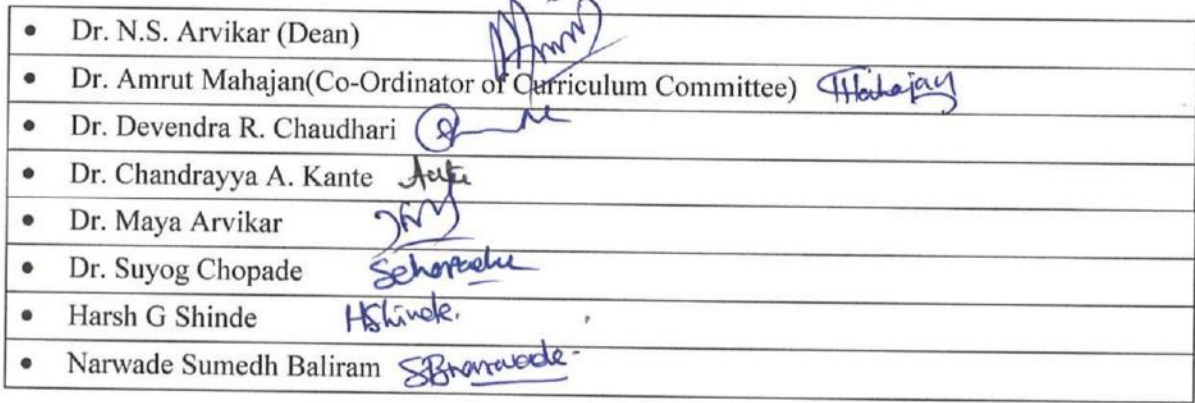 • Dr. N.S. Arvikar (Dean)
• Dr. Amrut Mahajan(Co-Ordinator of Curriculum Committee) Mahajan
• Dr. Devendra R. Chaudhari
• Dr. Chandrayya A. Kante
• Dr. Maya Arvikar
• Dr. Suyog Chopade
• Harsh G Shinde HShinde.
• Narwade Sumedh Baliram SBnarwade